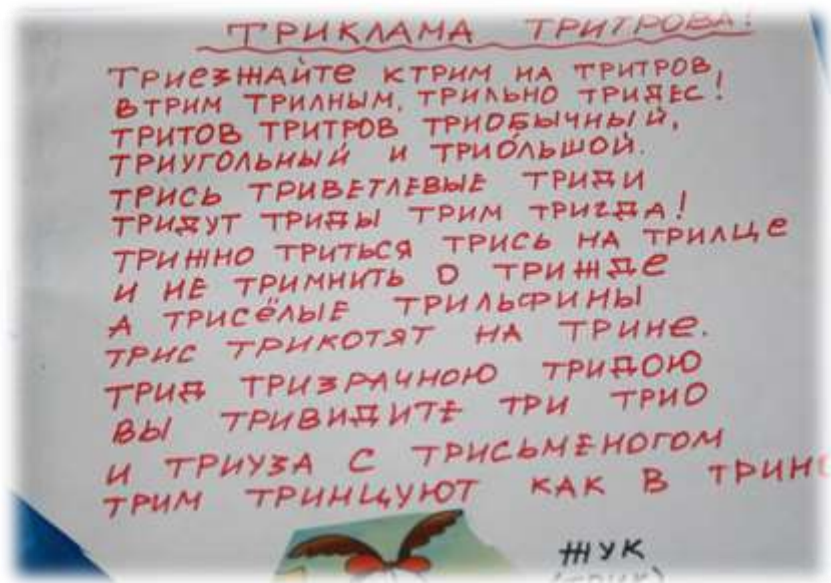 ТРИКЛАМА ТРИТРОВА!
ТРИЕЗЖАЙТЕ КТРИМ НА ТРИТРОВ,
ВТРИМ ТРИЛНЫМ, ТРИЛЬНО ТРИДЕС!
ТРИТОВ ТРИТРОВ ТРИОБЫЧНЫЙ,
ТРИУГОЛЬНЫЙ И ТРИОЛЬШОЙ.
ТРИСЬ ТРИВЕТЛЕВЫЕ ТРИДИ
ТРИДУТ ТРИДЫ ТРИМ ТРИГДА!
ТРИЖНО ТРИТЬСЯ ТРИСЬ НА ТРИЛЦЕ
И НЕ ТРИМНИТЬ О ТРИЖДЕ
А ТРИСЁЛЫЕ ТРИЛЬФИНЫ
ТРИС ТРИКОТЯТ НА ТРИНЕ.
ТРИД ТРИЗРАЧНОЮ ТРИДОЮ
ВЫ ТРИВИДИТЕ ТРИ ТРИО
И ТРИУЗА С ТРИСЬМЕНОГОМ
ТРИМ ТРИНЦУЮТ КАК В
ЖУК